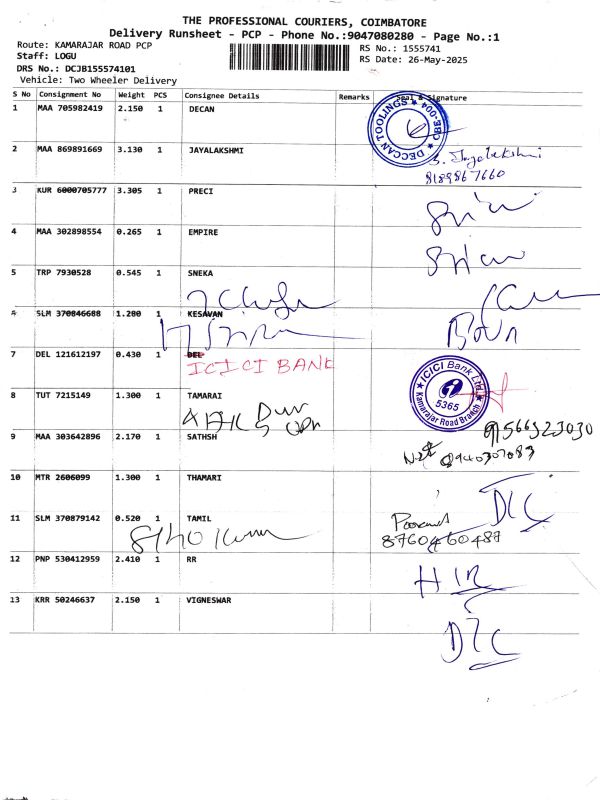 THE PROFESSIONAL COURIERS, COIMBATORE
Delivery Runsheet - PCP - Phone No.:9047080280 - Page No.:1
Route: KAMARAJAR ROAD PCP
Staff: LOGU
DRS No.: DCJB155574101
Vehicle: Two Wheeler Delivery
RS No.: 1555741
RS Date: 26-May-2025
S No Consignment No Weight PCS Consignee Details Remarks Seal & Signature
1 MAA 705982419 2.150 1 DECAN
DECCAN TOOLINGS CBE-004
2 MAA 869891669 3.130 1 JAYALAKSHMI
S. Jayalakshmi
8189867660
3 KUR 6000705777 3.305 1 PRECI
4 MAA 302898554 0.265 1 EMPIRE
5 TRP 7930528 0.545 1 SNEKA
6 SLM 370846688 1.280 1 KESAVAN
7 DEL 121612197 0.430 1 DEL
ICICI BANK
ICICI Bank Ltd.
5365
Kamarajar Road Branch
8 TUT 7215149 1.300 1 TAMARAI
9566323030
9 MAA 303642896 2.170 1 SATHSH
8940307083
10 MTR 2606099 1.300 1 THAMARI
11 SLM 370879142 0.520 1 TAMIL
8760460487
12 PNP 530412959 2.410 1 RR
13 KRR 50246637 2.150 1 VIGNESWAR